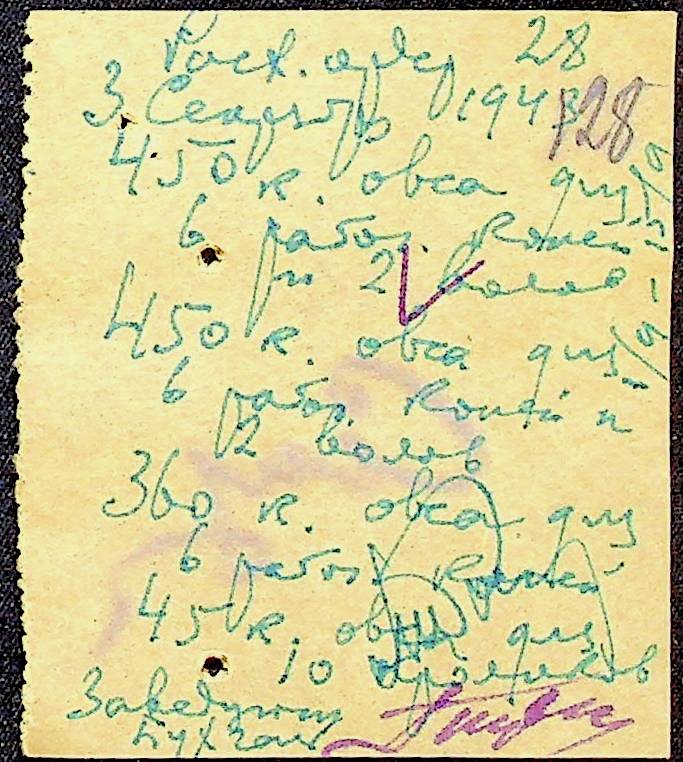 Расх. ордер 28
3 Сентября 1943
128
450 к. овса для
6 рабоч. коней
и 2 волов
450 к. овса для
6 рабоч. коней и
2 волов
360 к. овса для
6 рабоч. коней
45 к. овса для
10 кроликов
Заведующ